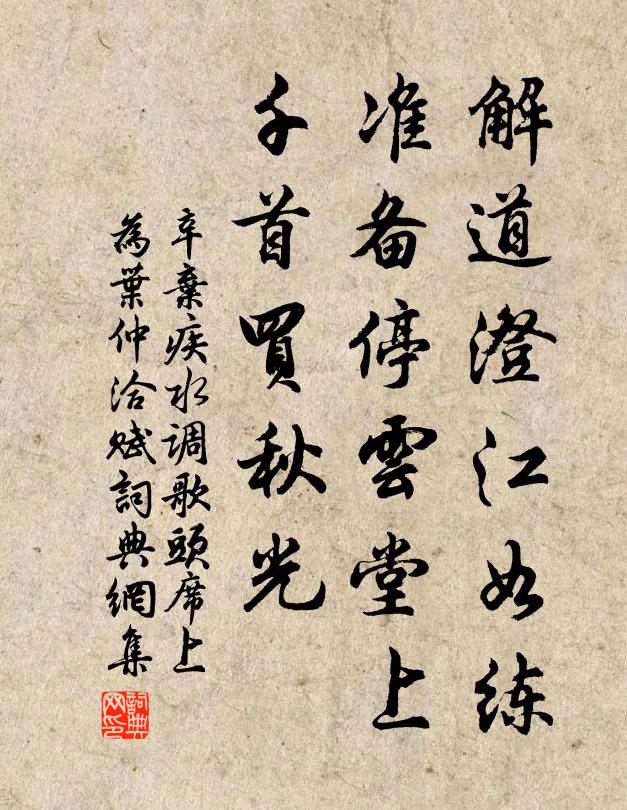 解道澄江如练
准备停雲堂上
千首買秋光
辛棄疾水调歌頭席上
為葉仲洽赋詞典網集
詞典
网印